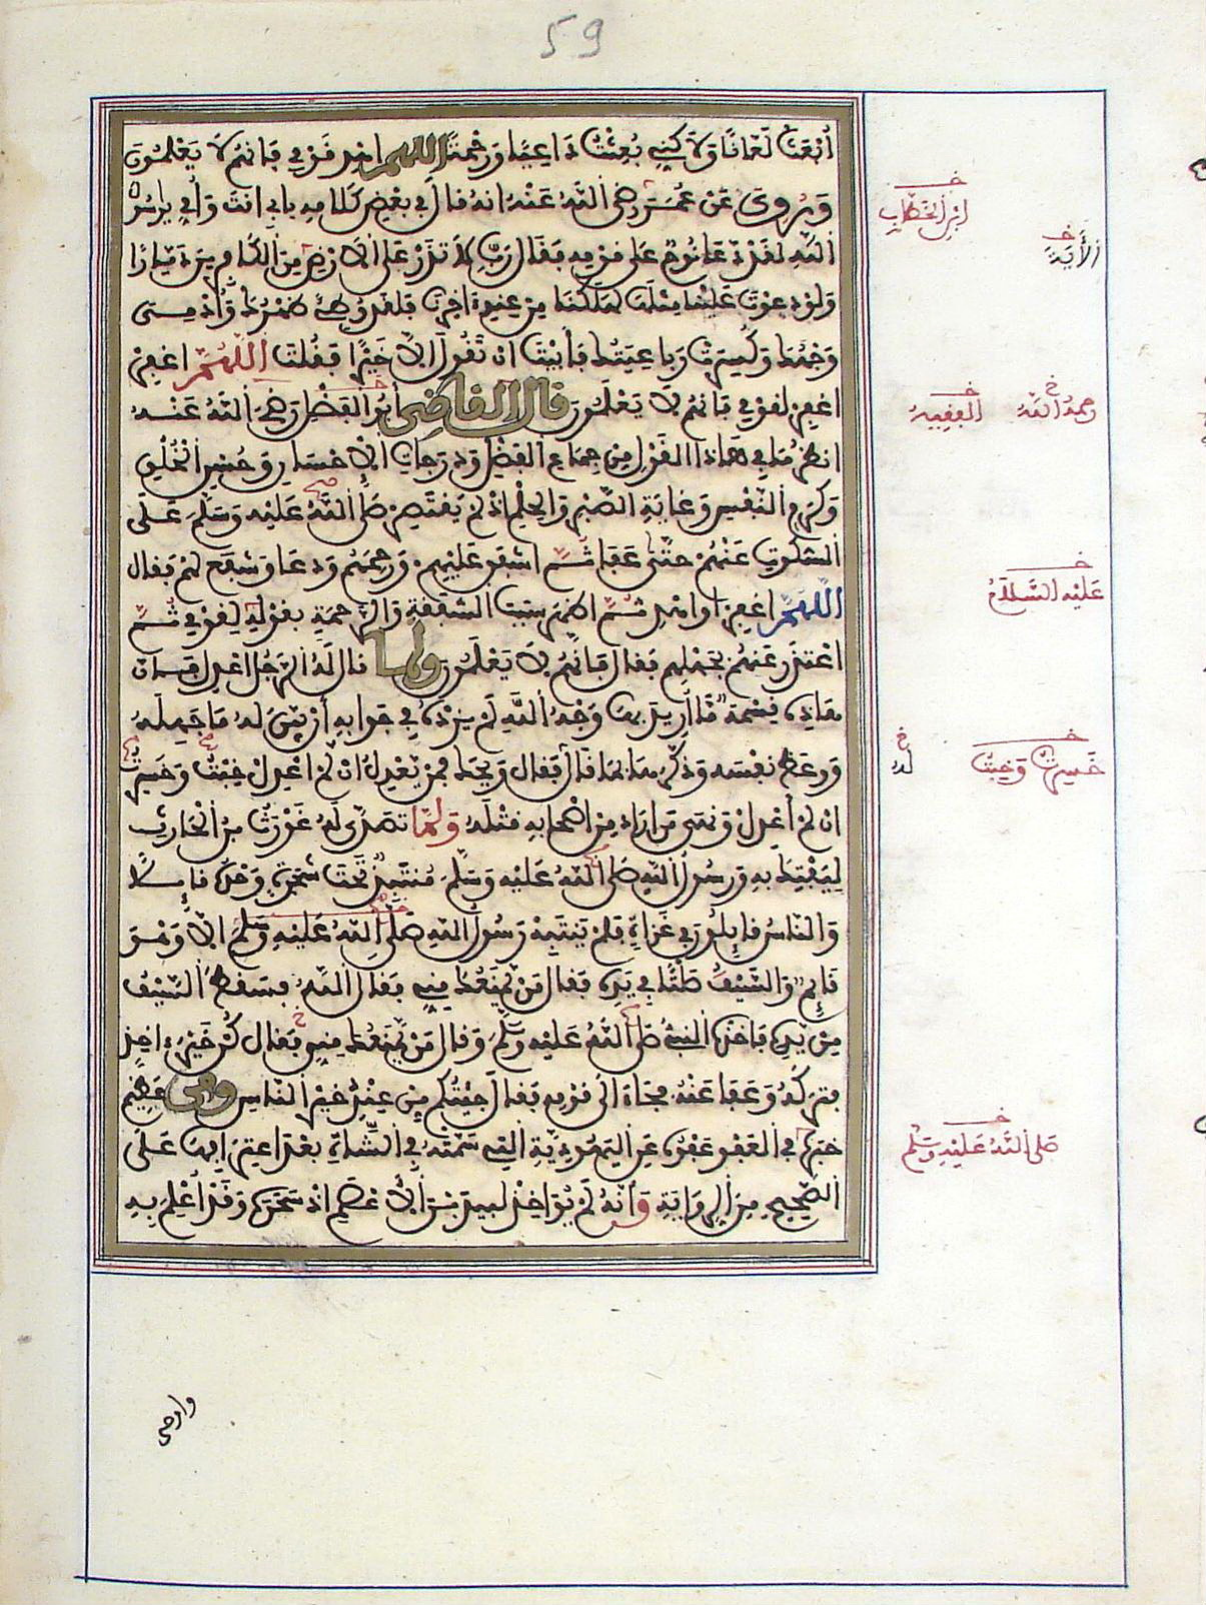 59
أُبْعَثْ لَعَّانًا وَلَاكِنِّي بُعِثْتُ دَاعِيًا وَرَحْمَةً اللهم اهد قومي فإنهم لا يَعْلَمُونَ
وَرُوِيَ عَنْ عُمَرَ رضي الله عَنْهُ انه قال في بعض كلامه بأبي انت وَأمي يرسول
الله لقد دعا نوح على قومه فقال رَبِّ لا تذر على الأرض من الكافرين ديارا
ولو دعوت علينا مثلها لهلكنا من عند اخرنا فلقد وطئ ظهرك وأدمى
وجهك وكسرت رباعيتك فأبيت ان تقول الا خيرا فقلت اللهم اغفر
اغفر لقومي فإنهم لا يعلمون قال القاضي أبو الفضل رضي الله عنه
انظر ما في هاذا القول من جماع الفضل ودرجات الاحسان وحسن الخلق
وكرم النفس وغاية الصبر والحلم اذ لم يقتصر صلى الله عليه وسلم على
السكوت عنهم حتى عفا ثم اشفق عليهم ورحمهم ودعا وشفع لهم فقال
اللهم اغفر أو اهد ثم اظهر سبب الشفقة والرحمة بقوله لقومي ثم
اعتذر عنهم بجهلهم فقال فإنهم لا يعلمون ولما قال له الرجل اعدل فإن
هاذه قسمة ما أريد بها وجه الله لم يزده في جوابه أن بين له ما جهله
ووعظ نفسه وذكرها بما قال له فقال ويحك فمن يعدل ان لم اعدل خبت وخسرت
ان لم أعدل ونهى من اراد من اصحابه قتله ولما تصدى له غورث بن الحارث
ليفتك به ورسول الله صلى الله عليه وسلم منتبذ تحت شجرة وحده قايلا
والناس قايلون في غزاة فلم ينتبه رسول الله صلى الله عليه وسلم الا وهو
قايم والسيف صلتا في يده فقال من يمنعك مني فقال الله فسقط السيف
من يده فاخذه النبي صلى الله عليه وسلم وقال من يمنعك مني فقال كن خير ءاخذ
فتركه وعفا عنه فجاء الى قومه فقال جيتكم من عند خير الناس ومن عظيم
خبره في العفو عفوه عن اليهودية التي سمته في الشاة بعد اعترافها على
الصحيح من الرواية وأنه لم يؤاخذ لبيد بن الأعصم اذ سحره وقد أعلم به
ابن الخطاب
الأية
رحمه الله
الفقيه
عليه السلام
خسرت وخبت
له
صلى الله عليه وسلم
واوحى